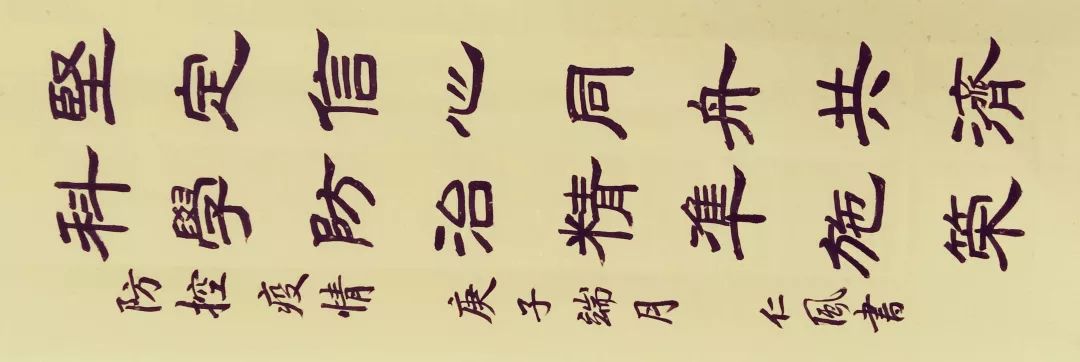 堅定信心同舟共濟
科學防治精準施策
防控疫情 庚子端月 仁風書